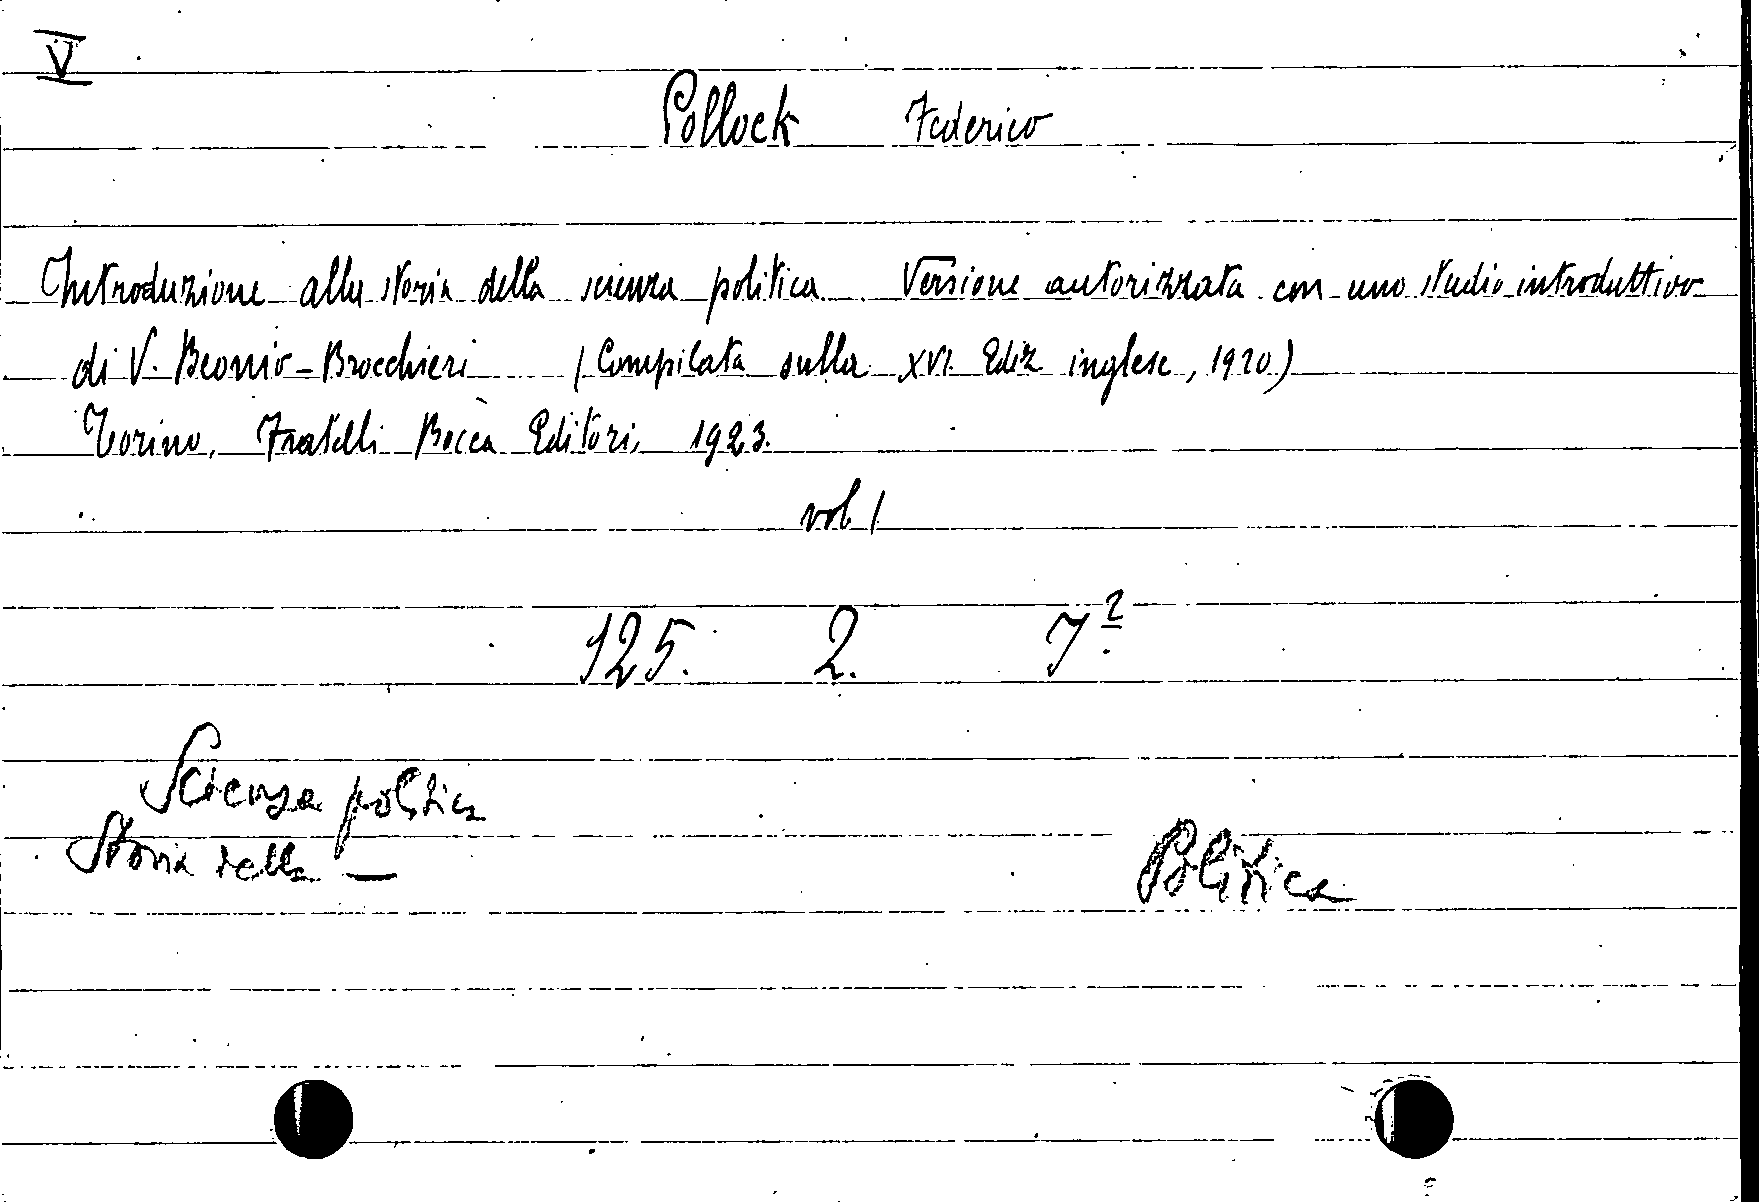 V
Pollock Federico
Introduzione alla storia della scienza politica. Versione autorizzata con uno studio introduttivo
di V. Beonio-Brocchieri (Compilata sulla XVI. Ediz inglese, 1920)
Torino, Fratelli Bocca Editori, 1923.
vol 1
125. 2. 7²
Scienza politica
Storia della —
Politica